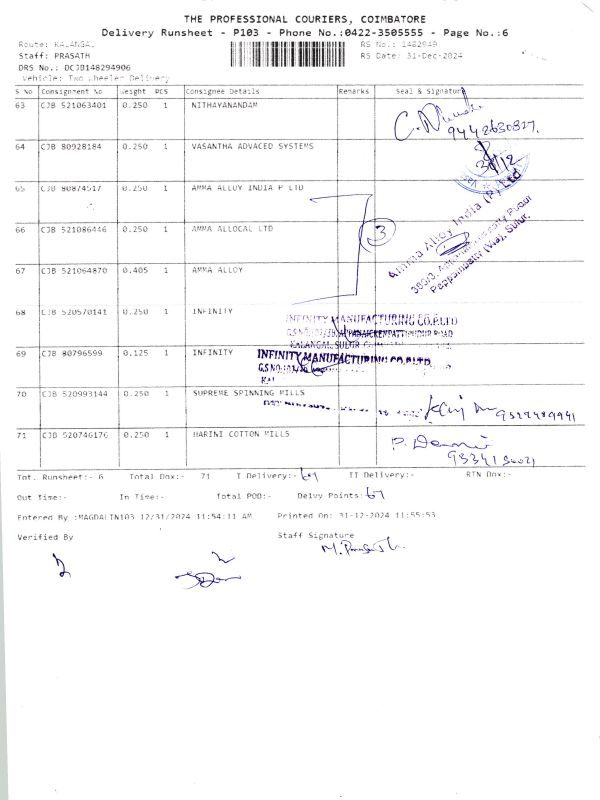 THE PROFESSIONAL COURIERS, COIMBATORE
Delivery Runsheet - P103 - Phone No.:0422-3505555 - Page No.:6
Route: KALANGAL
RS No.: 1482949
Staff: PRASATH
RS Date: 31-Dec-2024
DRS No.: DCJB148294906
Vehicle: Two Wheeler Delivery
S No Consignment No Weight PCS Consignee Details Remarks Seal & Signature
63 CJB 521063401 0.250 1 NITHAYANANDAM
9442630827.
64 CJB 80928184 0.250 1 VASANTHA ADVACED SYSTEMS
31/12
65 CJB 80874517 0.250 1 AMMA ALLOY INDIA P LTD
66 CJB 521086446 0.250 1 AMMA ALLOCAL LTD
3
Amma Alloy India (P) Ltd
Pappampatty (Via), Sulur.
67 CJB 521064870 0.405 1 AMMA ALLOY
68 CJB 520570141 0.250 1 INFINITY
INFINITY MANUFACTURING CO.P.LTD
KALANGAL, SULUR
69 CJB 80796599 0.125 1 INFINITY
INFINITY MANUFACTURING CO.P.LTD
70 CJB 520993144 0.250 1 SUPREME SPINNING MILLS
71 CJB 520746176 0.250 1 HARINI COTTON MILLS
Tot. Runsheet:- 6 Total Dox:- 71 T Delivery:- 67 IT Delivery:- RTN Dox:-
Out Time:- In Time:- Total POD:- Delvy Points: 67
Entered By :MAGDALIN103 12/31/2024 11:54:11 AM Printed On: 31-12-2024 11:55:53
Verified By Staff Signature